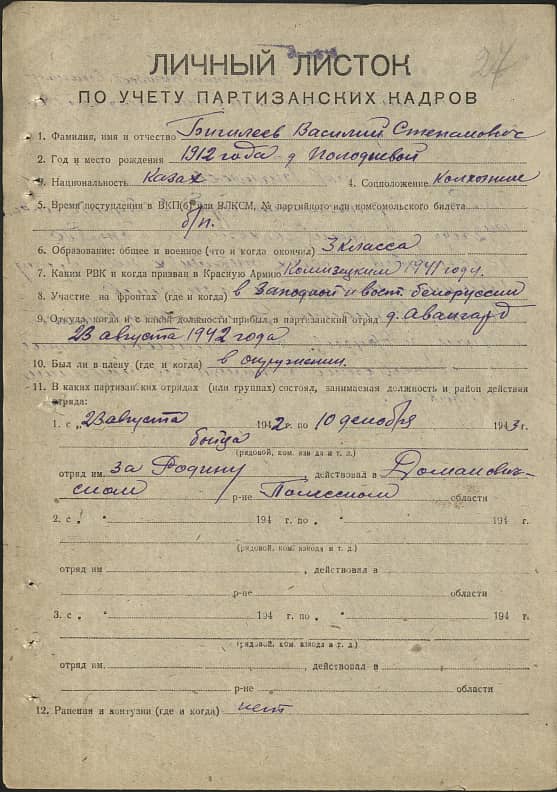 27
ЛИЧНЫЙ ЛИСТОК
ПО УЧЕТУ ПАРТИЗАНСКИХ КАДРОВ
1. Фамилия, имя и отчество Бигилеев Василий Степанович
2. Год и место рождения 1912 года д
3. Национальность Казах 4. Соцположение Колхозник
5. Время поступления в ВКП(б) или ВЛКСМ, № партийного или комсомольского билета
б/п.
6. Образование: общее и военное (что и когда окончил) 3 класса
7. Каким РВК и когда призван в Красную Армию 1941 году.
8. Участие на фронтах (где и когда) в Западной и вост. белоруссии
9. Откуда, когда и с какой должности прибыл в партизанский отряд д. Авангард
23 августа 1942 года
10. Был ли в плену (где и когда) в окружении.
11. В каких партизанских отрядах (или группах) состоял, занимаемая должность и район действия
отряда:
1. с „ 23 августа 1942 г. по 10 декабря 1943 г.
бойца
(рядовой, ком. взвода и т. д.)
отряд им за Родину действовал в Доманович-
ском р-не Полесском области
2. с „ " 194 г. по „ " 194 г.
(рядовой, ком. взвода и т. д.)
отряд им , действовал в
р-не области
3. с „ " 194 г. по „ " 194 г.
(рядовой, ком. взвода и т. д.)
отряд им. , действовал в
р-не области
12. Ранения и контузии (где и когда) нет